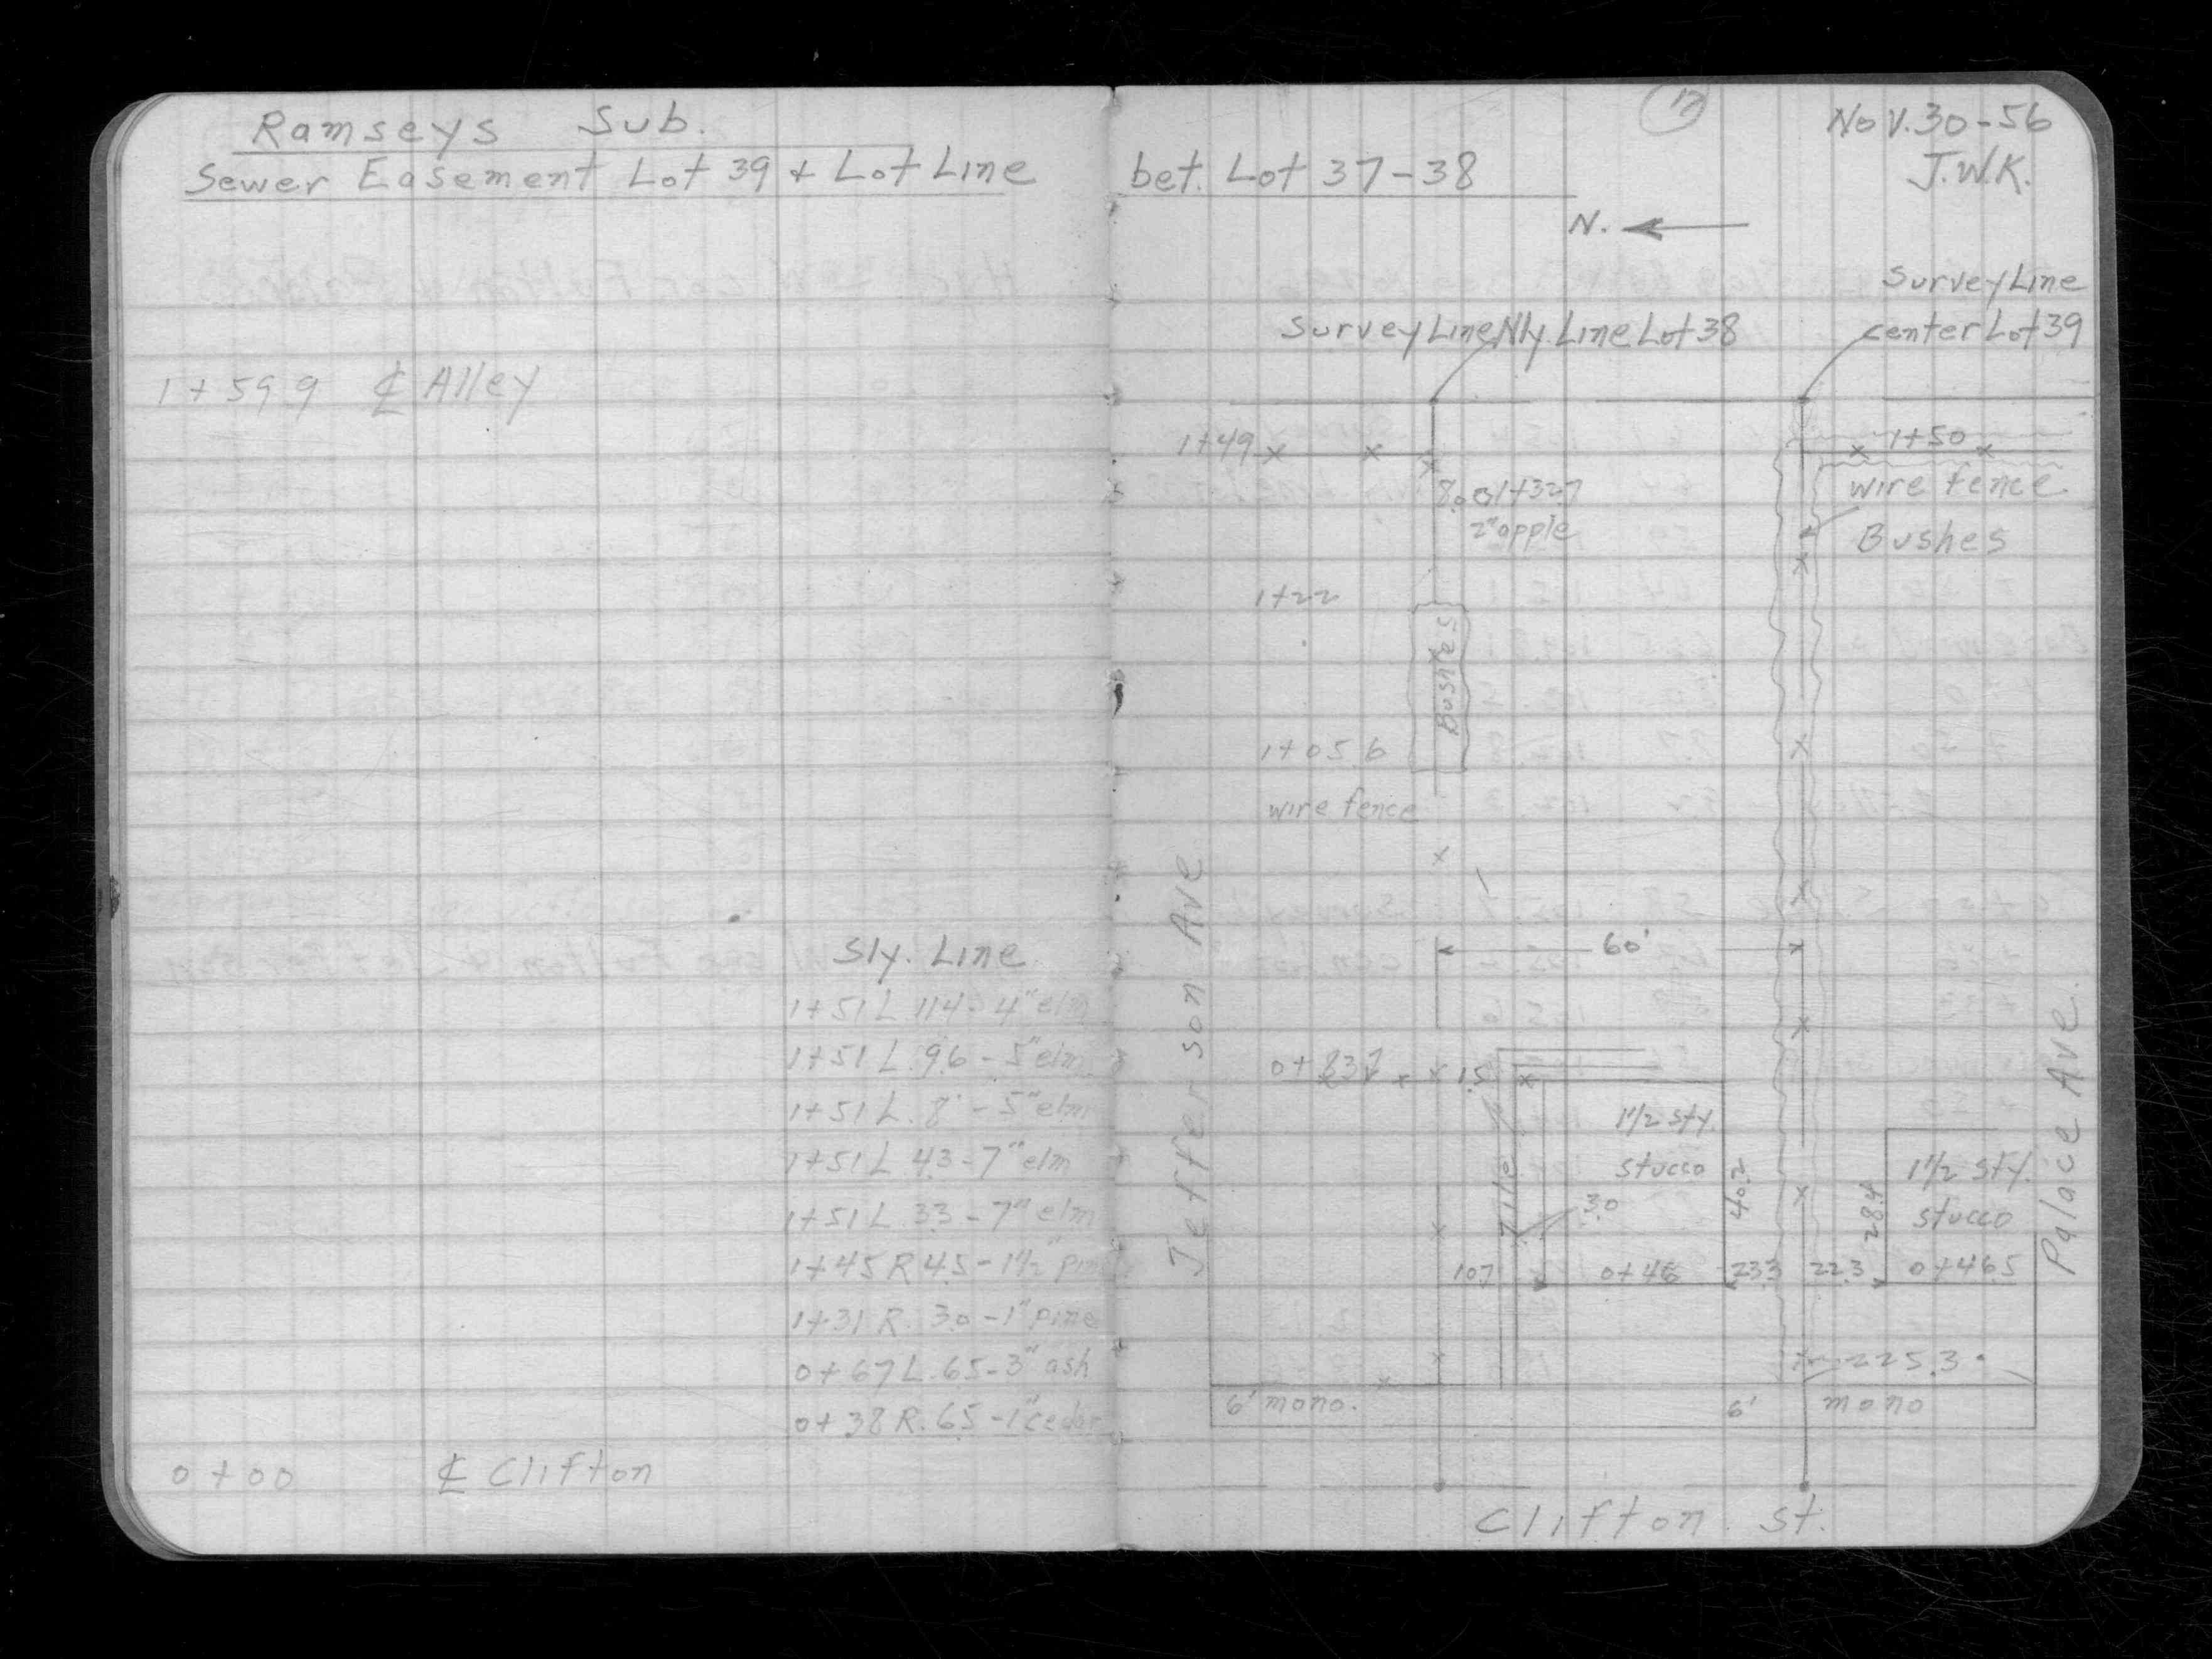 Ramseys Sub.
Sewer Easement Lot 39 + Lot Line
1+59.9 ℄ Alley
Sly. Line
1+51 L 11.4 - 4" elm
1+51 L. 9.6 - 5" elm
1+51 L. 8' - 5" elm
1+51 L 4.3 - 7" elm
1+51 L 3.3 - 7" elm
1+45 R 4.5 - 1 1/2"
1+31 R. 3.0 - 1" pine
0+67 L. 6.5 - 3" ash
0+38 R. 6.5 - 1" cedar
0+00 ℄ Clifton
17
Nov. 30-56
J.W.K.
bet. Lot 37-38
N.
Survey Line
center Lot 39
Survey Line Nly. Line Lot 38
1+49
1+50
8.0 1+32.7
2" apple
wire fence
Bushes
1+22
Bushes
1+05.6
wire fence
Jefferson Ave
60'
0+83.7
1.5
Tile
1 1/2 sty.
stucco
3.0
40.2
28.4
1 1/2 sty.
stucco
Palace Ave.
10.7
0+46
23.3
22.3
0+46.5
225.3
6' mono.
6' mono
Clifton st.